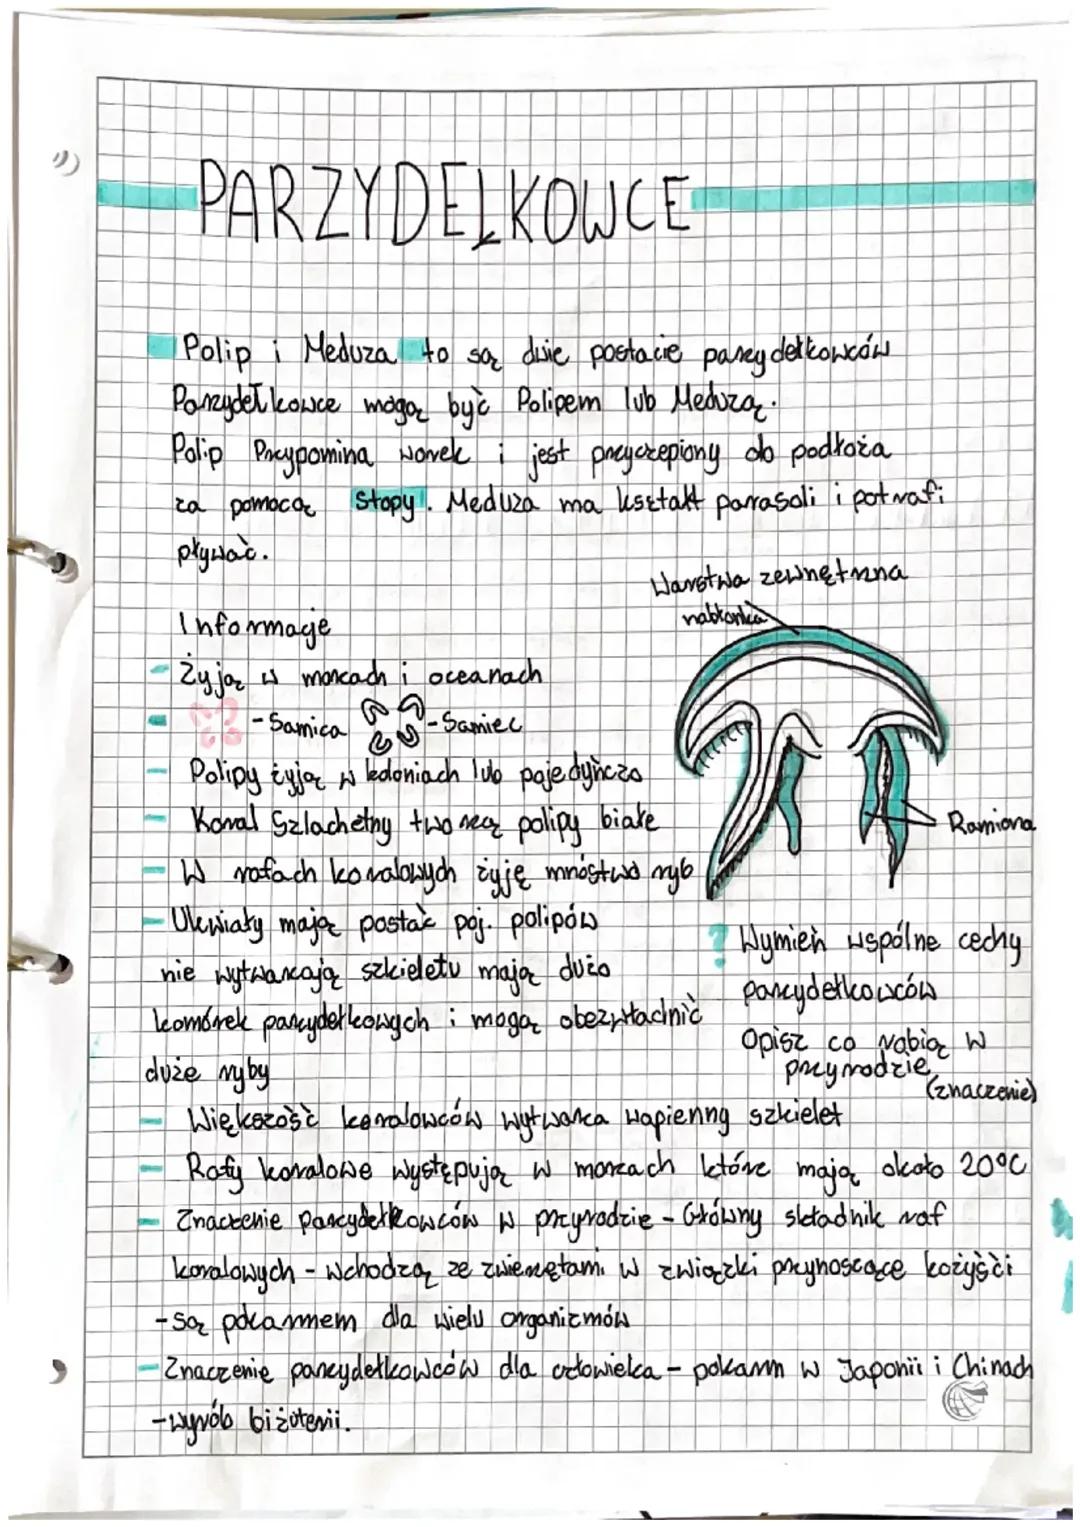 PARZYDEŁKOWCE
Polip i Meduza to są dwie postacie parzydełkowców
Parzydełkowce mogą być Polipem lub Meduzą.
Polip Przypomina worek i jest przyczepiony do podłoża
za pomocą stopy. Meduza ma kształt parasoli i potrafi
pływać.
Warstwa zewnętrzna
nabłonka
Informacje
- Żyją w morzach i oceanach
- Samica - Samiec
- Polipy żyją w koloniach lub pojedyńczo
- Koral Szlachetny tworzą polipy białe
Ramiona
- W rafach koralowych żyję mnóstwo ryb
- Ukwiały mają postać poj. polipów
nie wytwarzają szkieletu mają dużo
komórek parzydełkowych i mogą obezwładnić
duże ryby
? Wymień wspólne cechy
parzydełkowców
Opisz co robią w
przyrodzie
(znaczenie)
- Większość koralowców wytwarza wapienny szkielet
- Rafy koralowe występują w morzach które mają około 20°C
- Znaczenie parzydełkowców w przyrodzie - Główny składnik raf
koralowych - wchodzą ze zwierzętami w związki przynoszące kożyści
- są pokarmem dla wielu organizmów
- Znaczenie parzydełkowców dla człowieka - pokarm w Japonii i Chinach
- wyrób biżuterii.